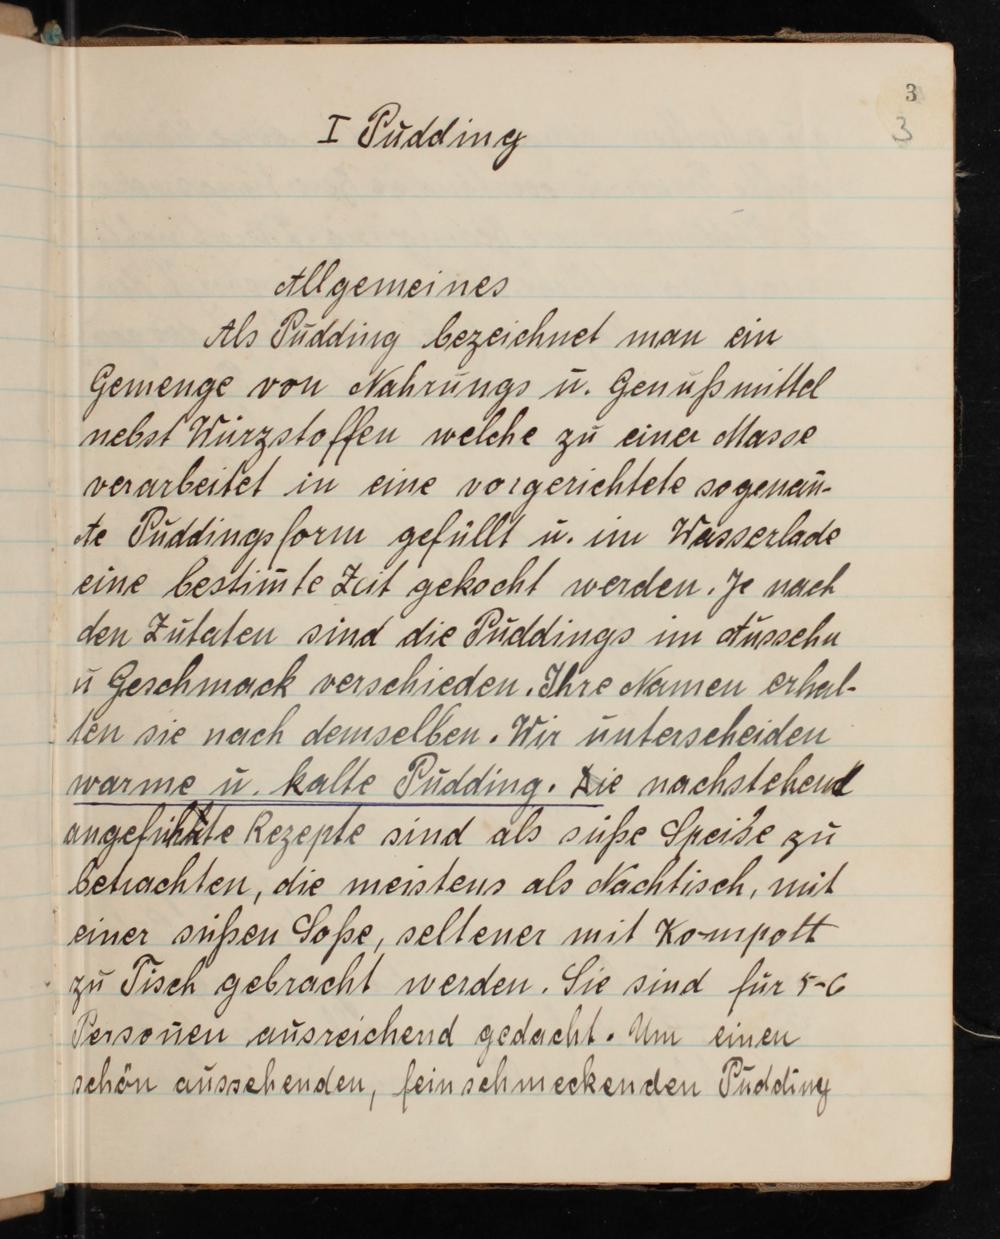 3
3
I Pudding
Allgemeines
Als Pudding bezeichnet man ein
Gemenge von Nahrungs u. Genußmittel
nebst Würzstoffen welche zu einer Masse
verarbeitet in eine vorgerichtete sogenan̄-
te Puddingsform gefüllt u. im Wasserbade
eine bestim̄te Zeit gekocht werden. Je nach
den Zutaten sind die Puddings im Aussehn
u Geschmack verschieden. Ihre Namen erhal-
ten sie nach demselben. Wir unterscheiden
warme u. kalte Pudding. Die nachstehend
angeführte Rezepte sind als süße Speise zu
betrachten, die meistens als Nachtisch, mit
einer süßen Soße, seltener mit Kompott
zu Tisch gebracht werden. Sie sind für 5-6
Personen ausreichend gedacht. Um einen
schön aussehenden, feinschmeckenden Pudding